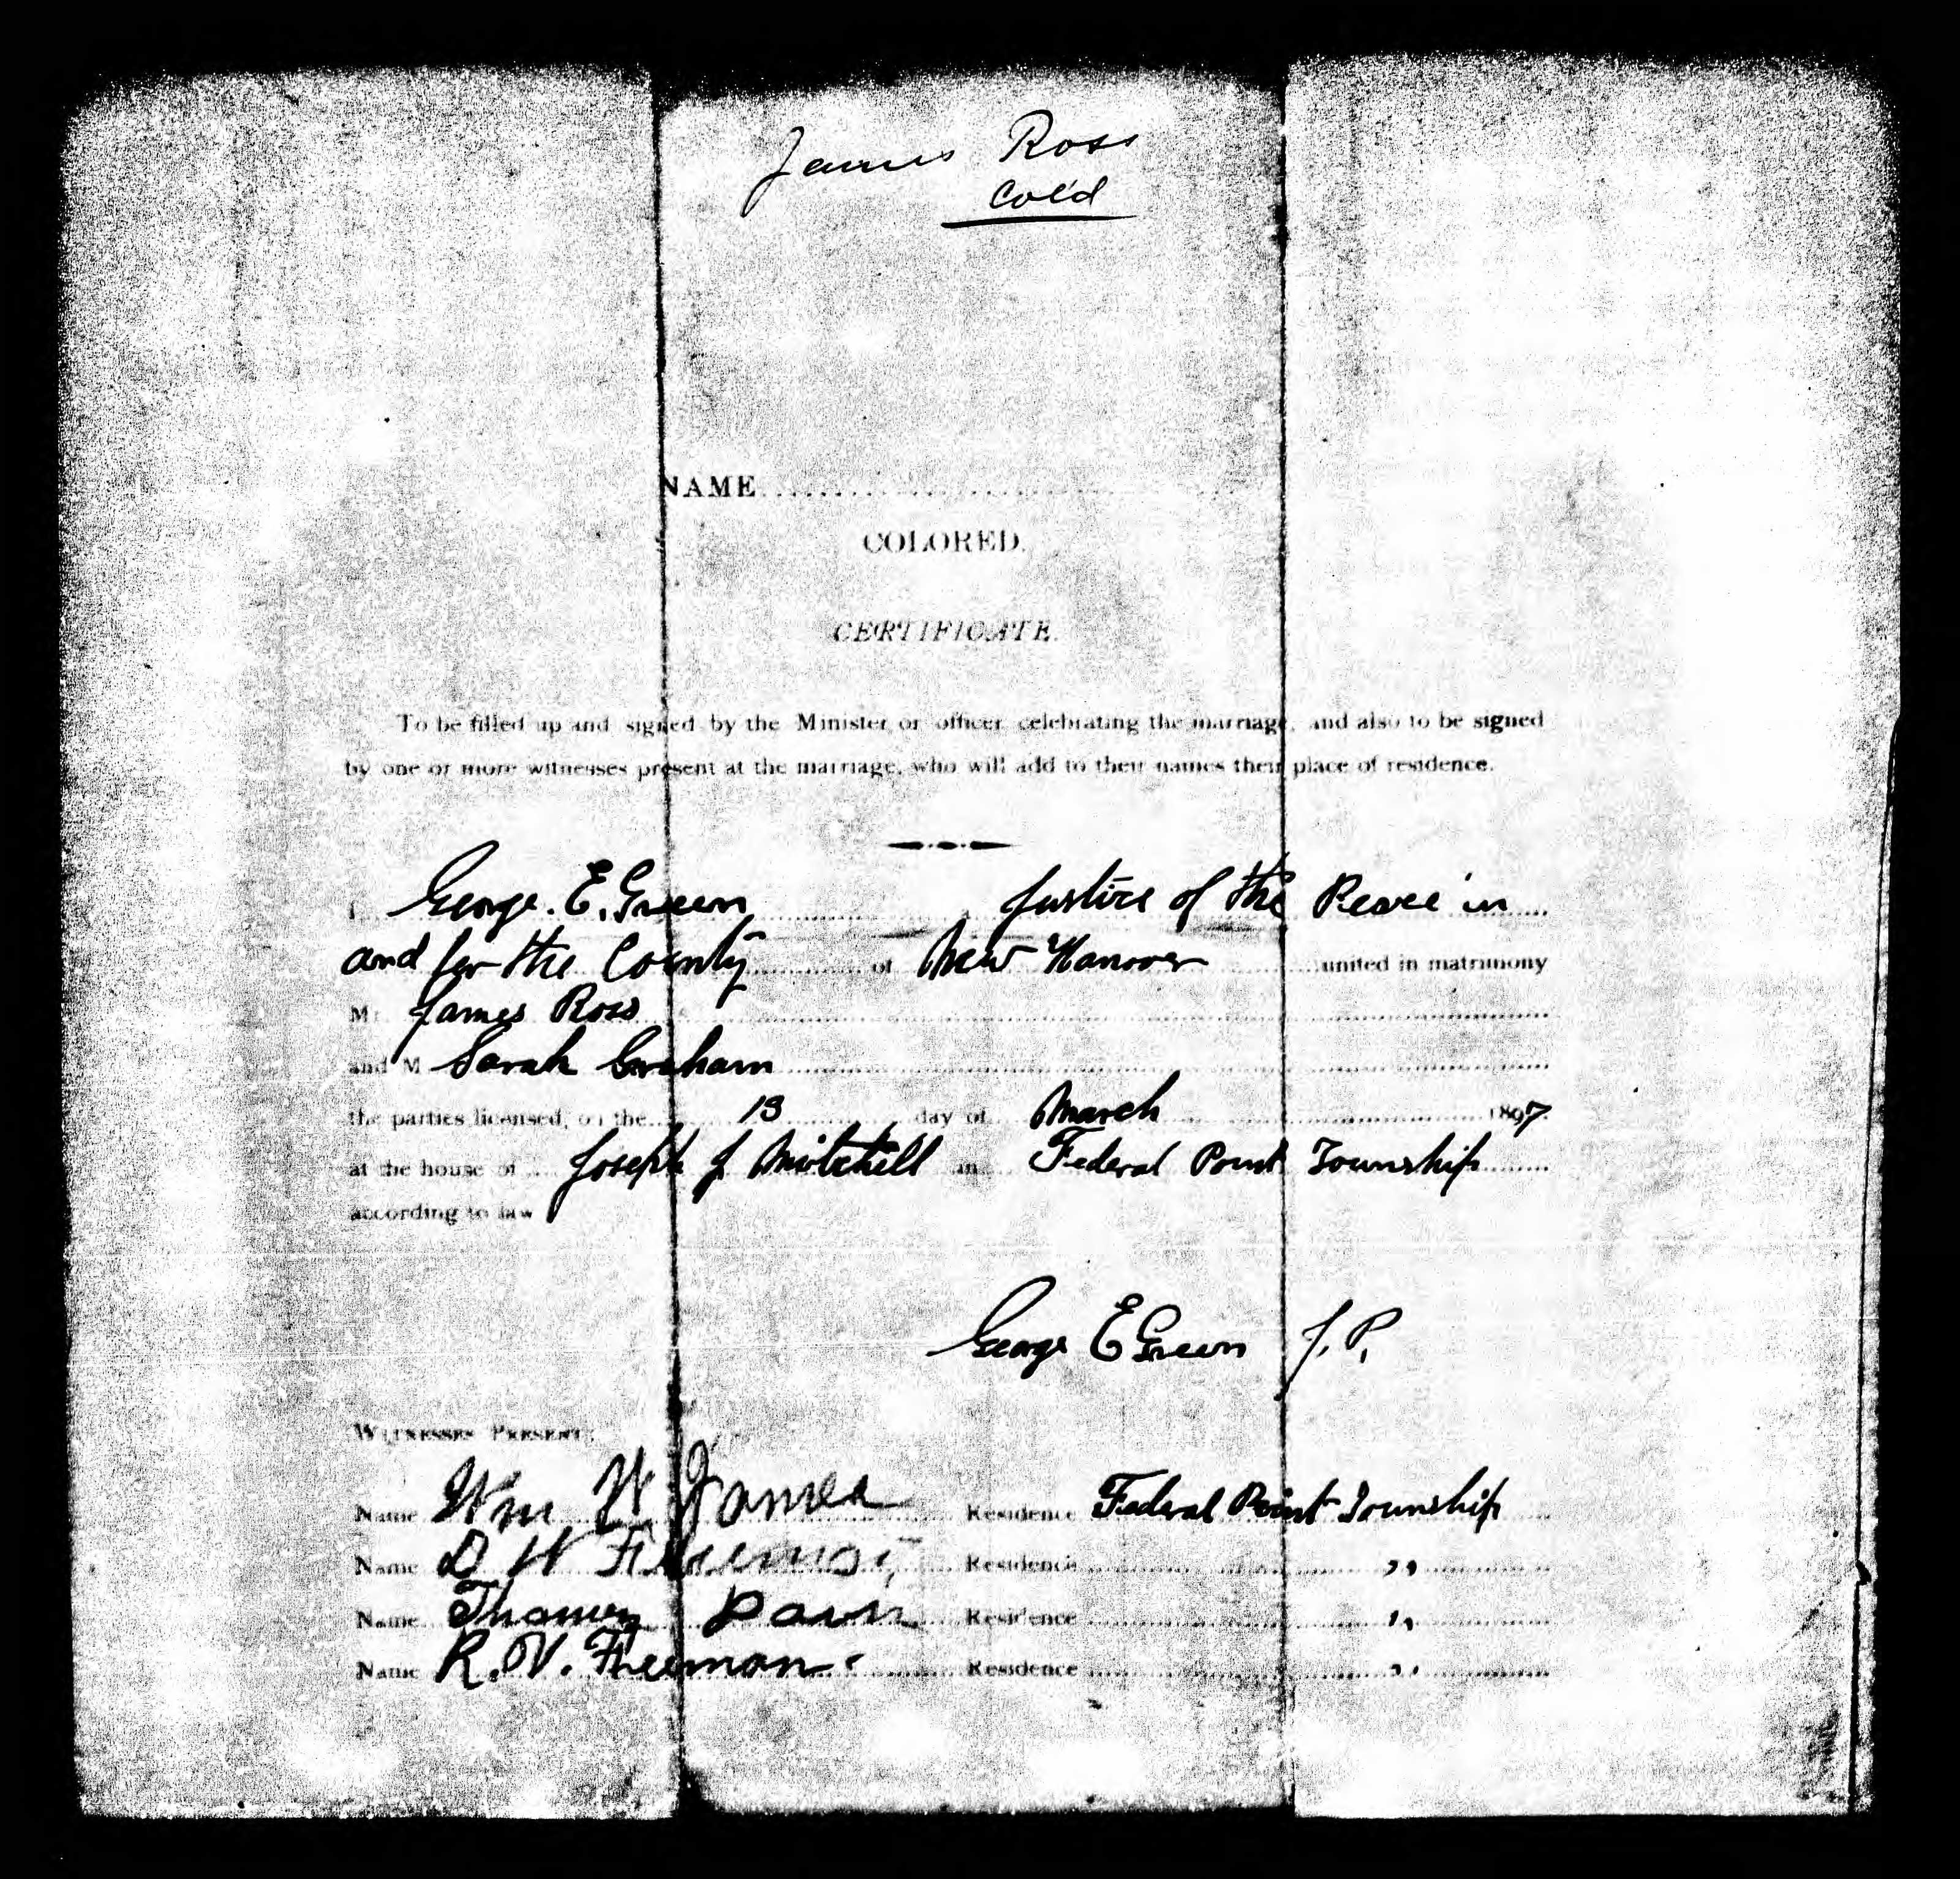 James Ross
Col'd
NAME
COLORED.
CERTIFICATE.
To be filled up and signed by the Minister or officer celebrating the marriage, and also to be signed
by one or more witnesses present at the marriage, who will add to their names their place of residence.
I George. E. Green Justice of the Peace in
and for the County of New Hanover united in matrimony
Mr James Ross
and M Sarah Graham
the parties licensed, on the 13 day of March 1897
at the house of Joseph J Mitchell in Federal Point Township
according to law
George E Green J.P.
WITNESSES PRESENT:
Name Wm W James Residence Federal Point Township
Name D W Residence "
Name Thomas Residence "
Name R. W. Freeman Residence "